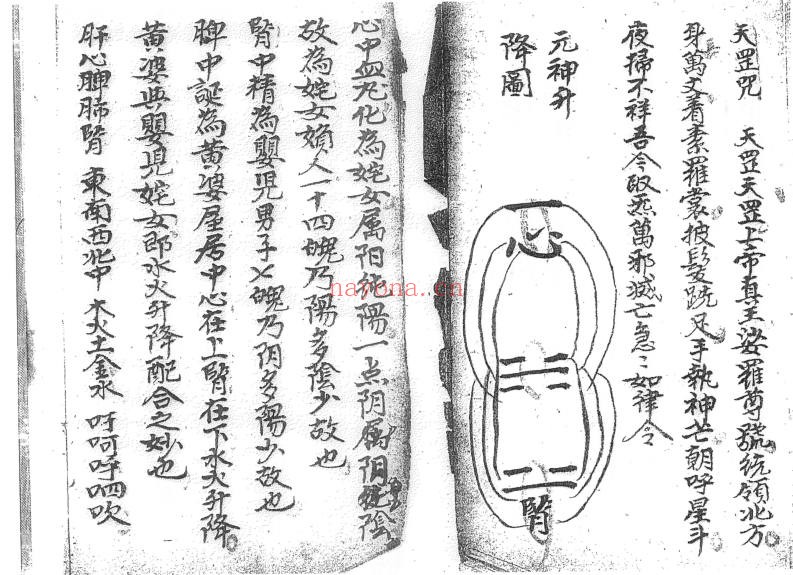 天罡咒　天罡天罡上帝真王娑羅尊號統領北方
身萬丈着素羅裳披髮跣足手執神芒朝呼星斗
夜掃不祥吾今取炁萬邪滅亡急〻如律令
元神升
降圖
心
腎
心中血炁化為姹女属阳純陽一点阴属阴純陰
故為姹女須人十四魄乃陽多陰少故也
腎中精為嬰児男子七魄乃阴多陽少故也
脾中誕為黃婆屋居中心在上腎在下水火升降
黃婆與嬰児姹女郎水火升降配合之妙也
肝心脾肺腎　東南西北中　木火土金水　吁呵呼呬吹
nayona.cn